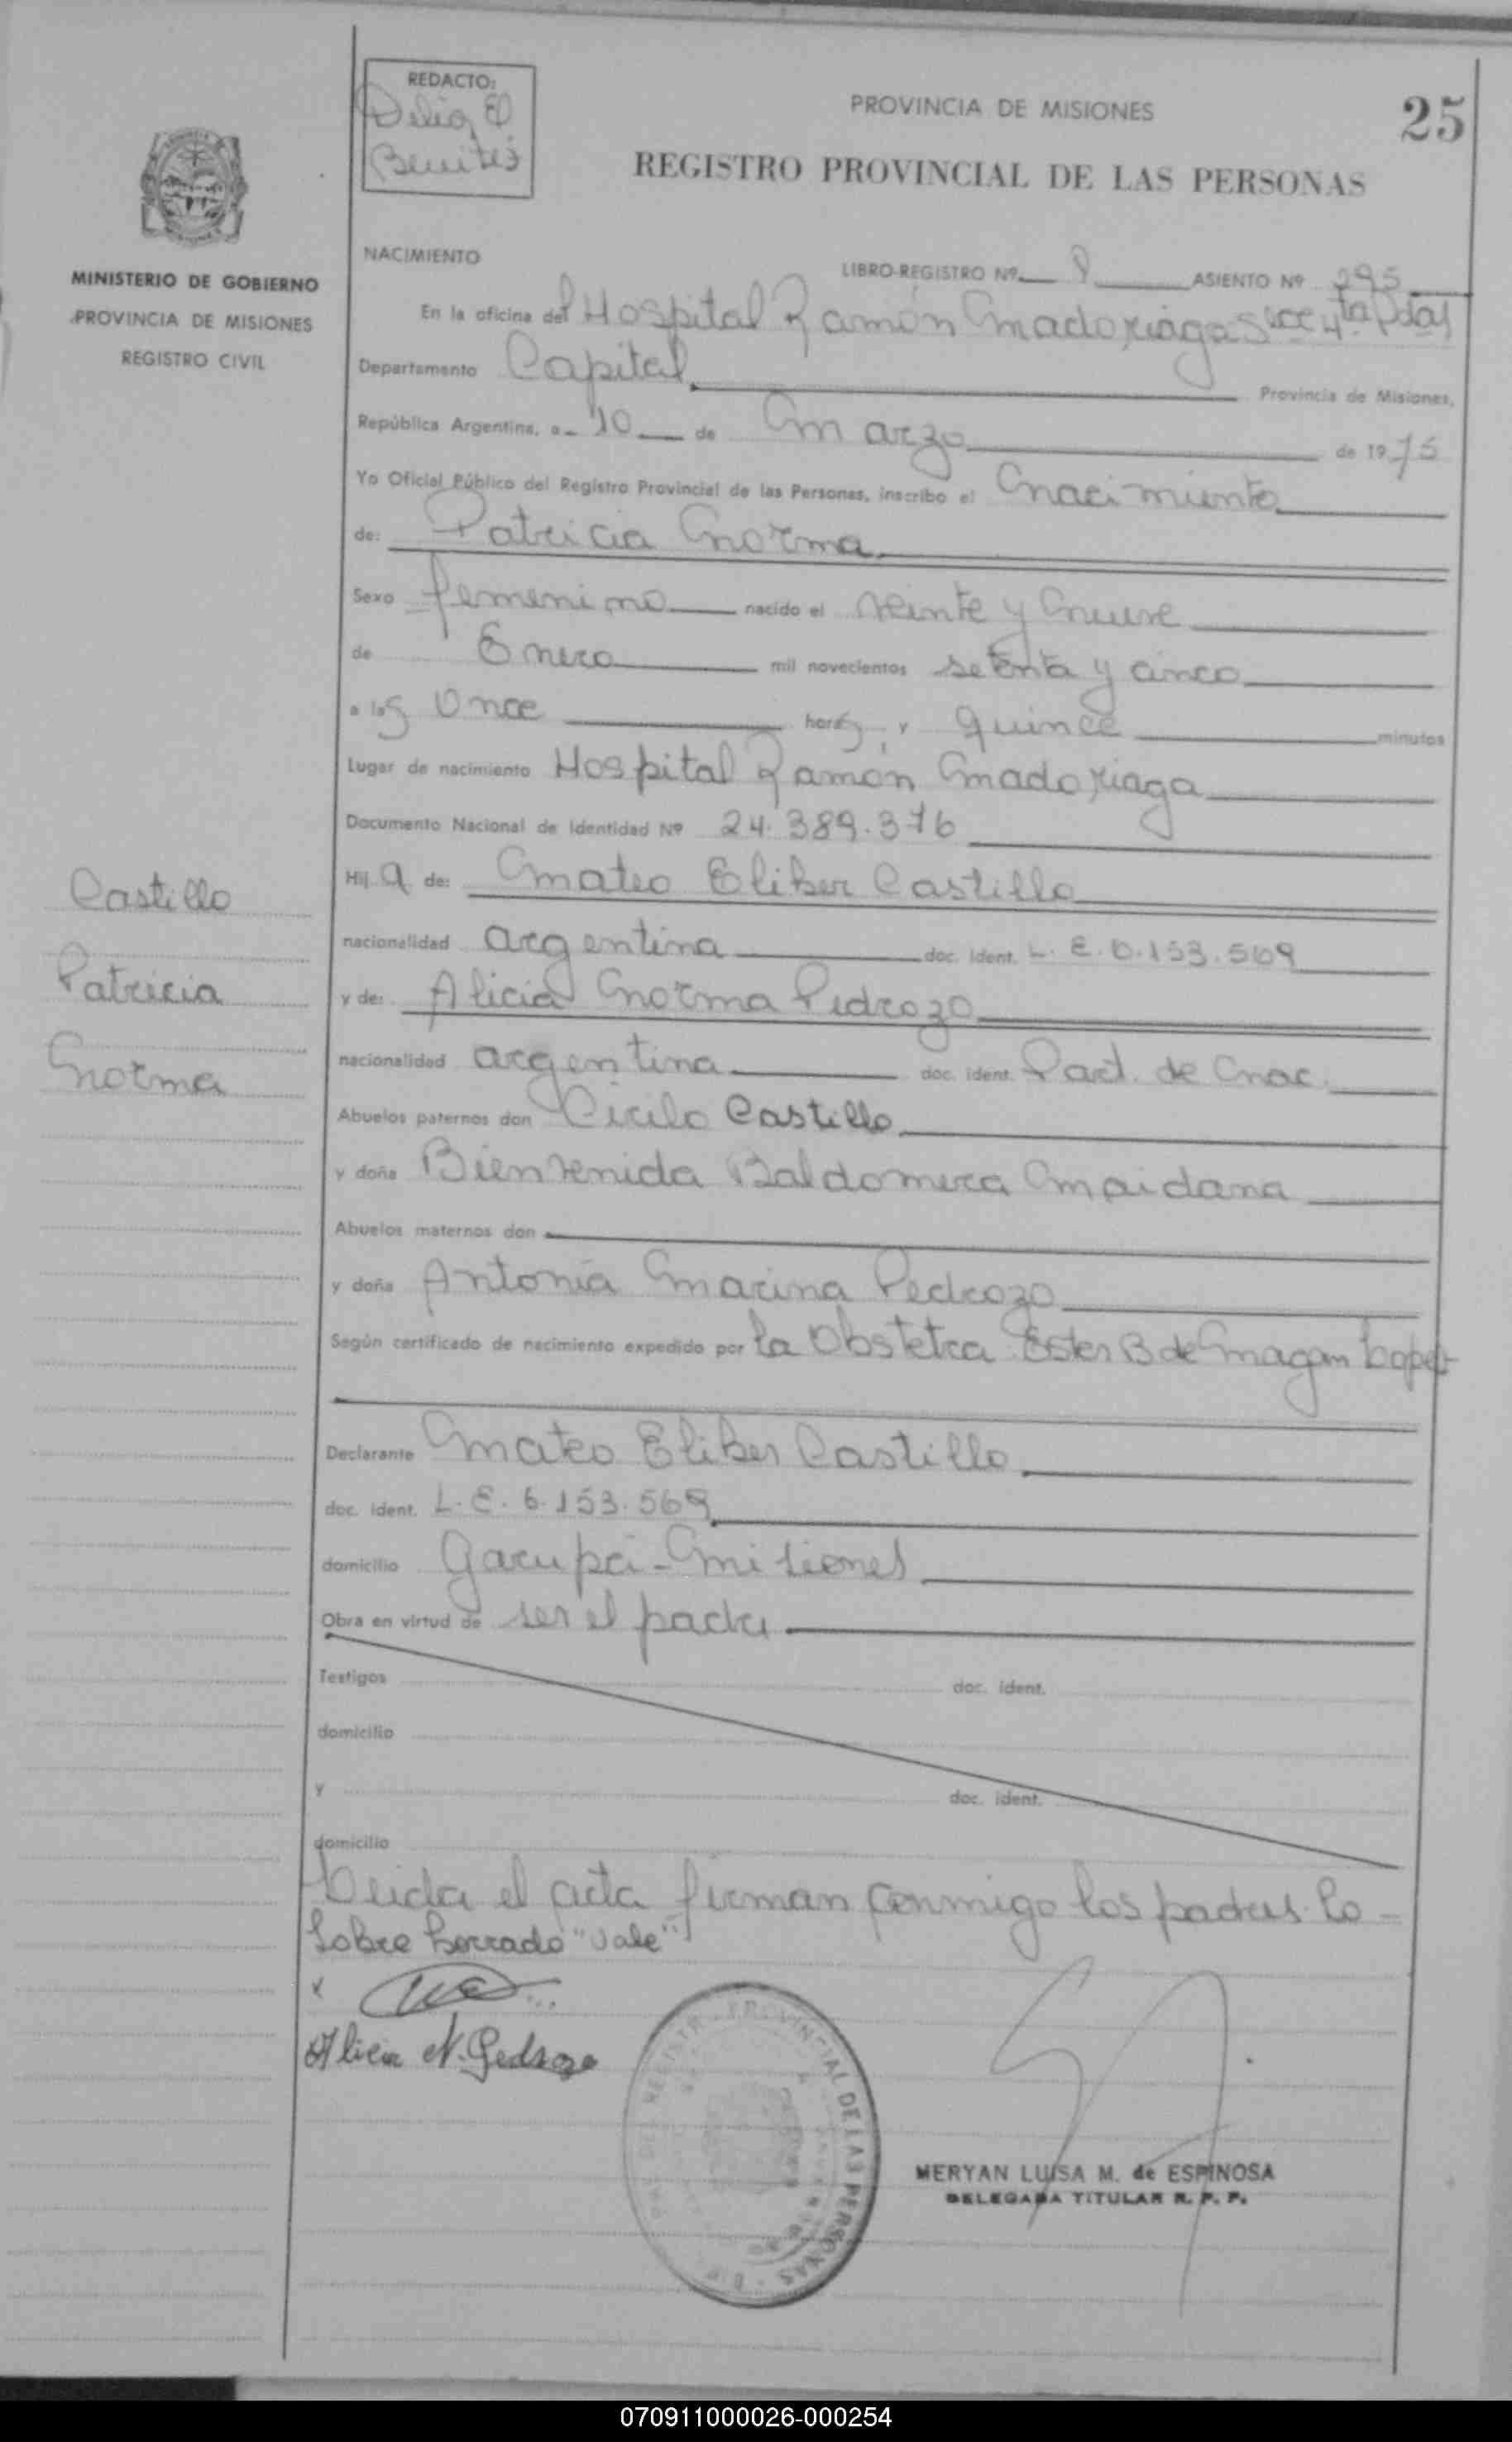 REDACTO:
Delia E
Benitez
PROVINCIA DE MISIONES
25
REGISTRO PROVINCIAL DE LAS PERSONAS
MINISTERIO DE GOBIERNO
PROVINCIA DE MISIONES
REGISTRO CIVIL
NACIMIENTO
LIBRO-REGISTRO Nº ASIENTO Nº 295
En la oficina del Hospital Ramón Madariaga Secc 4ta Pdas
Departamento Capital Provincia de Misiones,
República Argentina, a 10 de Marzo de 1975
Yo Oficial Público del Registro Provincial de las Personas, inscribo el Nacimiento
de: Patricia Norma
Sexo femenino nacido el veinte y Nueve
de Enero mil novecientos setenta y cinco
a las Once horas, y quince minutos
Lugar de nacimiento Hospital Ramón Madariaga
Documento Nacional de Identidad Nº 24.389.376
Hija de: Mateo Eliber Castillo
nacionalidad argentina doc. ident. L. E. 6.153.569
y de: Alicia Norma Pedrozo
nacionalidad argentina doc. ident. Part. de Nac.
Abuelos paternos don Cirilo Castillo
y doña Bienvenida Baldomera Maidana
Abuelos maternos don
y doña Antonia Marina Pedrozo
Según certificado de nacimiento expedido por la Obstetra Ester B de Magan Lopez
Declarante Mateo Eliber Castillo
doc. ident. L. E. 6.153.569
domicilio Garupá - Misiones
Obra en virtud de ser el padre
Testigos doc. ident.
domicilio
y doc. ident.
domicilio
Leida el acta firman conmigo los padres. Lo -
Sobre borrado "Vale"
x
Alicia N. Pedrozo
Castillo
Patricia
Norma
REGISTRO PROVINCIAL DE LAS PERSONAS
MERYAN LUISA M. de ESPINOSA
DELEGADA TITULAR R. P. P.
070911000026-000254